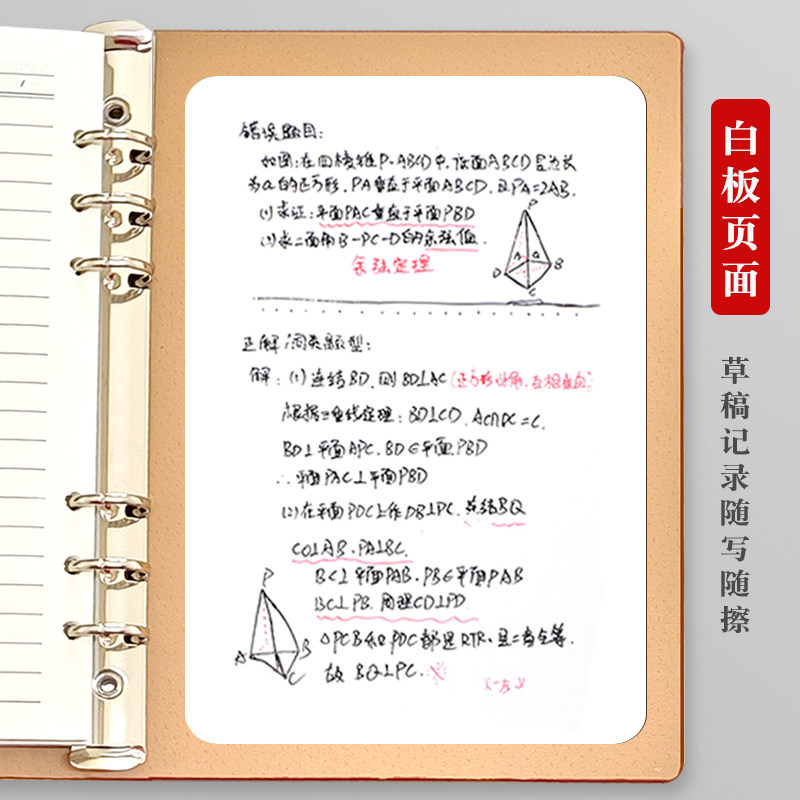 错误题目:
如图:在四棱锥P-ABCD中,底面ABCD是边长
为a的正方形,PA垂直于平面ABCD,且PA=2AB.
(1)求证:平面PAC垂直于平面PBD
(2)求二面角B-PC-D的余弦值.
余弦定理
P
D
B
C
正解/同类题型:
解:(1)连结BD,则BD⊥AC(正方形对角,互相垂直)
根据三垂线定理:BD⊥CO.AC∩PC=C.
BD⊥平面APC.BD∈平面PBD
∴平面PAC⊥平面PBD
(2)在平面PDC上作DB⊥PC.并结BQ
CO⊥AB.PA⊥BC.
BC⊥平面PAB.PB∈平面PAB
BC⊥PB.同理CD⊥PD.
△PCB和PDC都是RT△.且二者全等.
故BQ⊥PC.
P
A
B
C
白板页面
草稿记录随写随擦